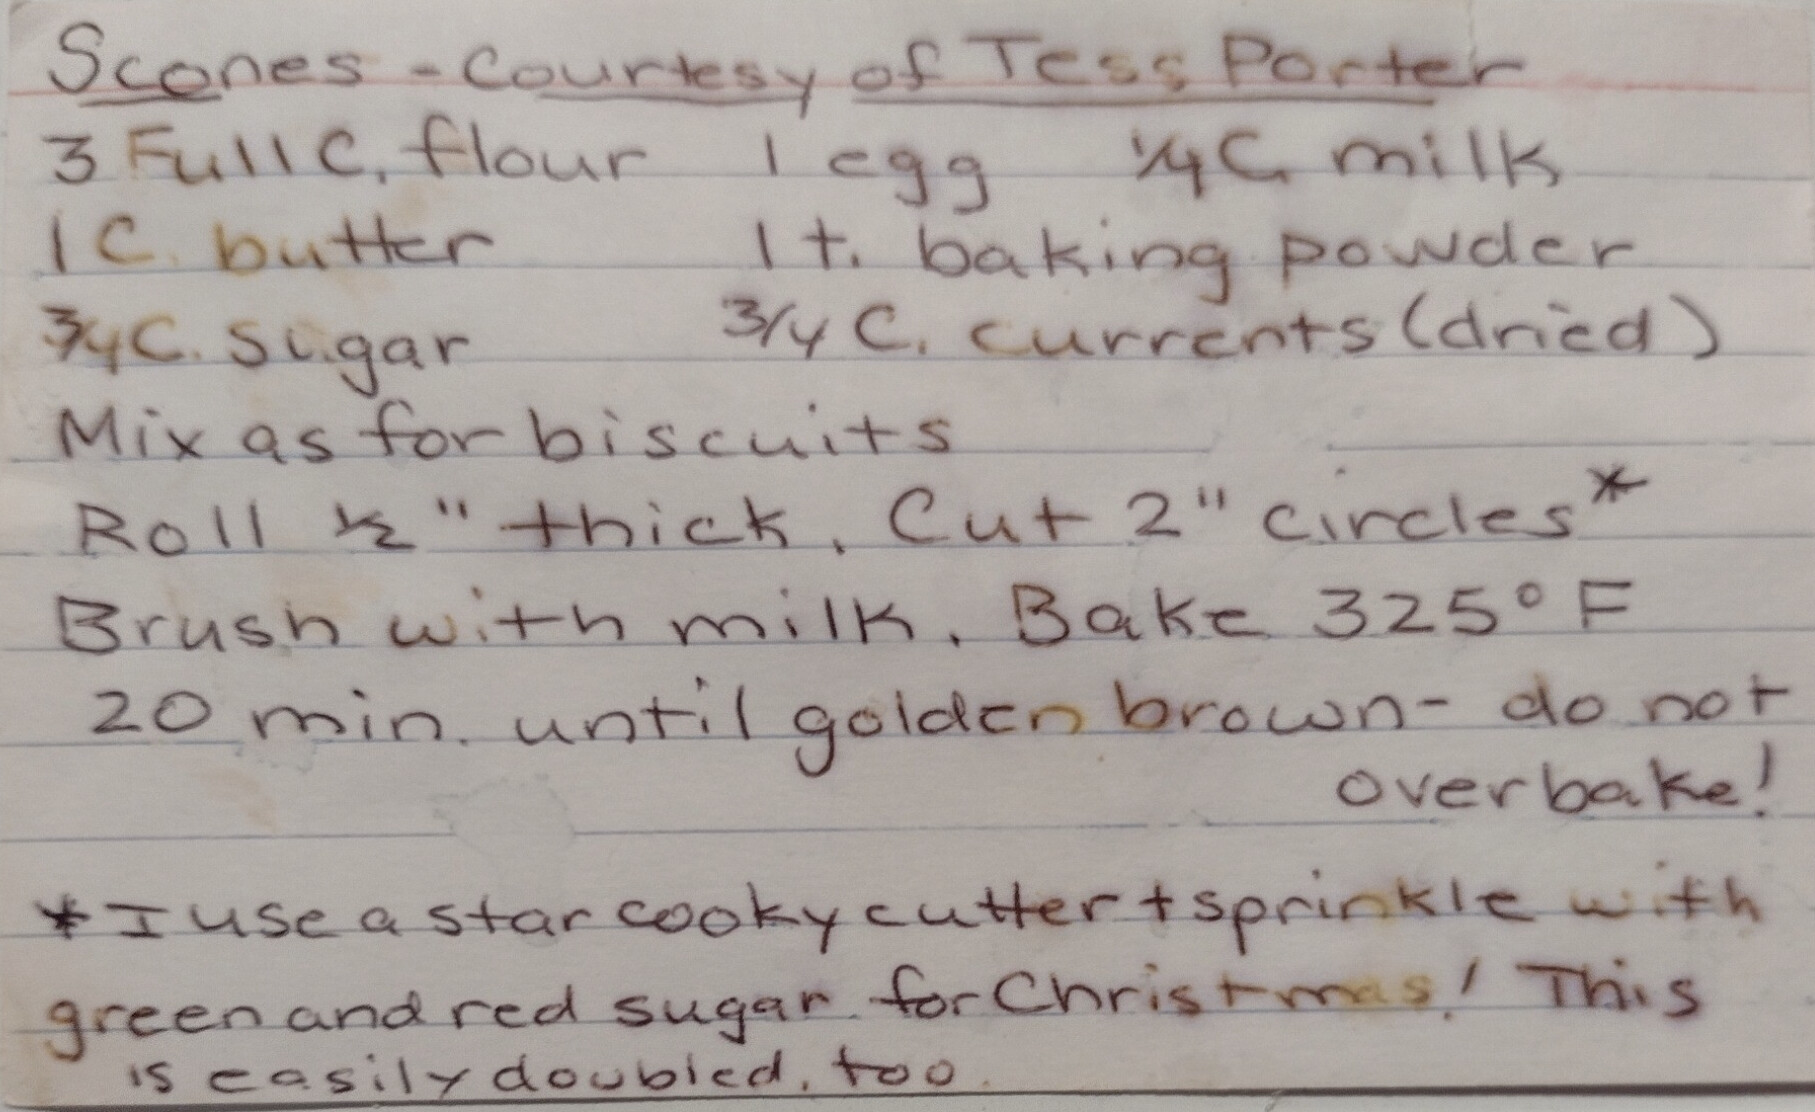 Scones - Courtesy of Tess Porter
3 Full C. flour 1 egg 1/4 C milk
1 C. butter 1 t. baking powder
3/4 C. sugar 3/4 C. currents (dried)
Mix as for biscuits
Roll 1/2" thick. Cut 2" circles*
Brush with milk. Bake 325° F
20 min. until golden brown - do not
overbake!
* I use a star cooky cutter + sprinkle with
green and red sugar for Christmas! This
is easily doubled, too.